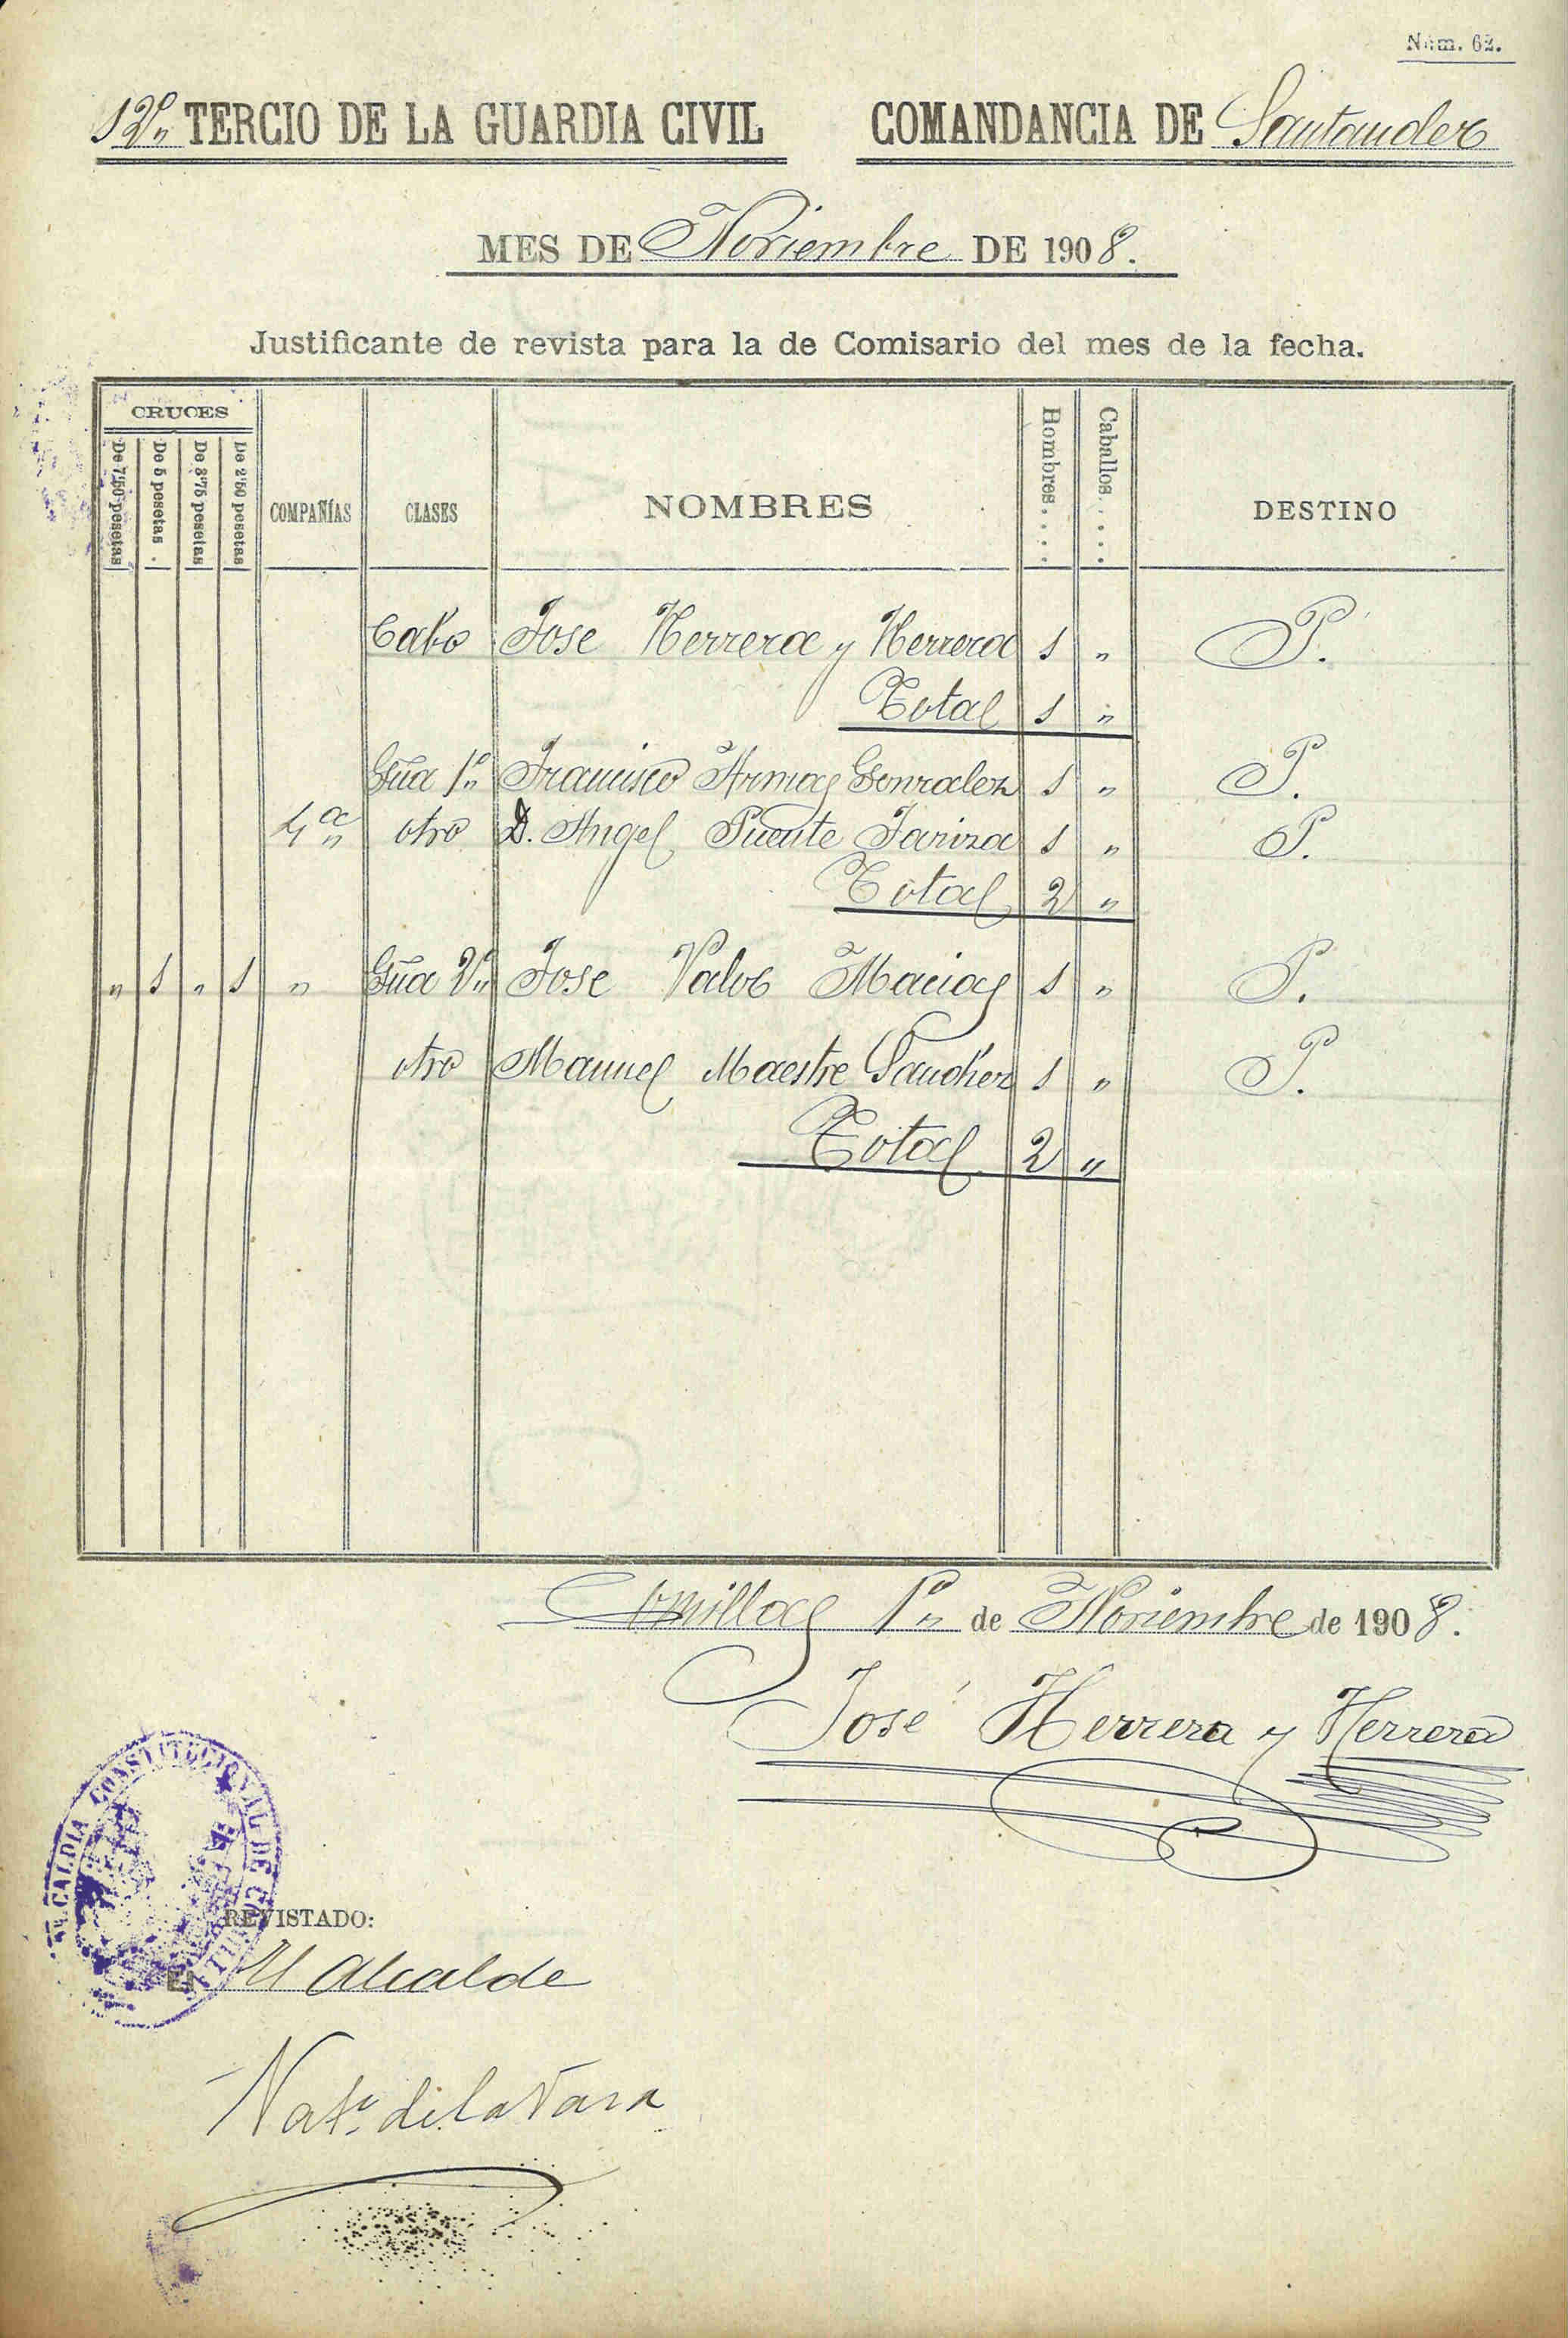 Núm. 62.
12º TERCIO DE LA GUARDIA CIVIL COMANDANCIA DE Santander
MES DE Noviembre DE 1908.
Justificante de revista para la de Comisario del mes de la fecha.
CRUCES
De 7'50 pesetas De 5 pesetas . De 3'75 pesetas De 2'50 pesetas COMPAÑÍAS CLASES NOMBRES Hombres. . . . Caballos. . . . . DESTINO
Cabo Jose Herrera y Herrera 1 " P.
Total 1 "
Gũa 1º Francisco Armas Gonzalez 1 " P.
4ª otro D. Angel Puente 1 " P.
Total 2 "
" 1 " 1 " Gũa 2º Jose Macias 1 " P.
otro Manuel Maestre Sanchez 1 " P.
Total 2 "
Comillas 1º de Noviembre de 1908.
José Herrera y Herrera
ALCALDIA CONSTITUCIONAL DE COMILLAS
REVISTADO:
El El Alcalde
de la Vara